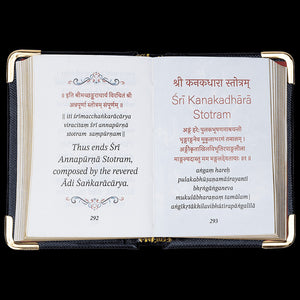 ॥ इति श्रीमच्छङ्कराचार्य विरचितं श्री
अन्नपूर्णा स्तोत्रम् संपूर्णम् ॥
|| iti śrīmacchaṅkarācārya
viracitaṁ śrī annapūrṇā
stotram saṁpūrṇam ||
Thus ends Śrī
Annapūrṇā Stotram,
composed by the revered
Ādi Śaṅkarācārya.
292
श्री कनकधारा स्तोत्रम्
Śrī Kanakadhārā
Stotram
अङ्गं हरेः पुलकभूषणमाश्रयन्ती
भृङ्गाङ्गनेव मुकुलाभरणं तमालम् ।
अङ्गीकृताखिलविभूतिरपाङ्गलीला
माङ्गल्यदास्तु मम मङ्गलदेवतायाः ॥
aṅgaṁ hareḥ
pulakabhūṣaṇamāśrayantī
bhṛṅgāṅganeva
mukulābharaṇaṁ tamālam |
aṅgīkṛtākhilavibhūtirapāṅgalīlā
293